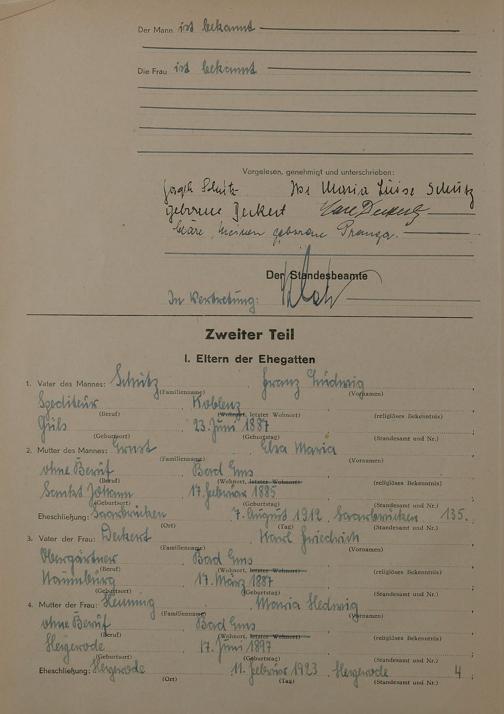 Der Mann ist bekannt
Die Frau ist bekannt
Vorgelesen, genehmigt und unterschrieben:
Schütz Maria Luise Schütz
geborene Deckert
geborene
Der Standesbeamte
In Vertretung:
Zweiter Teil
I. Eltern der Ehegatten
1. Vater des Mannes: Schütz Franz Ludwig
(Familienname) (Vornamen)
Spediteur Koblenz
(Beruf) (Wohnort, letzter Wohnort) (religiöses Bekenntnis)
Güls 23. Juni 1887
(Geburtsort) (Geburtstag) (Standesamt und Nr.)
2. Mutter des Mannes: Ernst Elsa Maria
(Familienname) (Vornamen)
ohne Beruf Bad Ems
(Beruf) (Wohnort, letzter Wohnort) (religiöses Bekenntnis)
Sankt Johann 17. Februar 1885
(Geburtsort) (Geburtstag) (Standesamt und Nr.)
Eheschließung: Saarbrücken 7. August 1912 Saarbrücken 135.
(Ort) (Tag) (Standesamt und Nr.)
3. Vater der Frau: Deckert Karl Friedrich
(Familienname) (Vornamen)
Obergärtner Bad Ems
(Beruf) (Wohnort, letzter Wohnort) (religiöses Bekenntnis)
Naumburg 17. März 1887
(Geburtsort) (Geburtstag) (Standesamt und Nr.)
4. Mutter der Frau: Hennig Maria Hedwig
(Familienname) (Vornamen)
ohne Beruf Bad Ems
(Beruf) (Wohnort, letzter Wohnort) (religiöses Bekenntnis)
Heygerode 17. Juni 1897
(Geburtsort) (Geburtstag) (Standesamt und Nr.)
Eheschließung: Heygerode 11. Februar 1923 Heygerode 4
(Ort) (Tag) (Standesamt und Nr.)